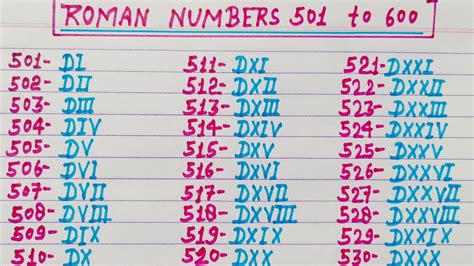 ROMAN NUMBERS 501 to 600
501- DI 511- DXI 521- DXXI
502- DII 512- DXII 522- DXXII
503- DIII 513- DXIII 523- DXXIII
504- DIV 514- DXIV 524- DXXIV
505- DV 515- DXV 525- DXXV
506- DVI 516- DXVI 526- DXXVI
507- DVII 517- DXVII 527- DXXVII
508- DVIII 518- DXVIII 528- DXXVIII
509- DIX 519- DXIX 529- DXXIX
510- DX 520- DXX 530- DXXX